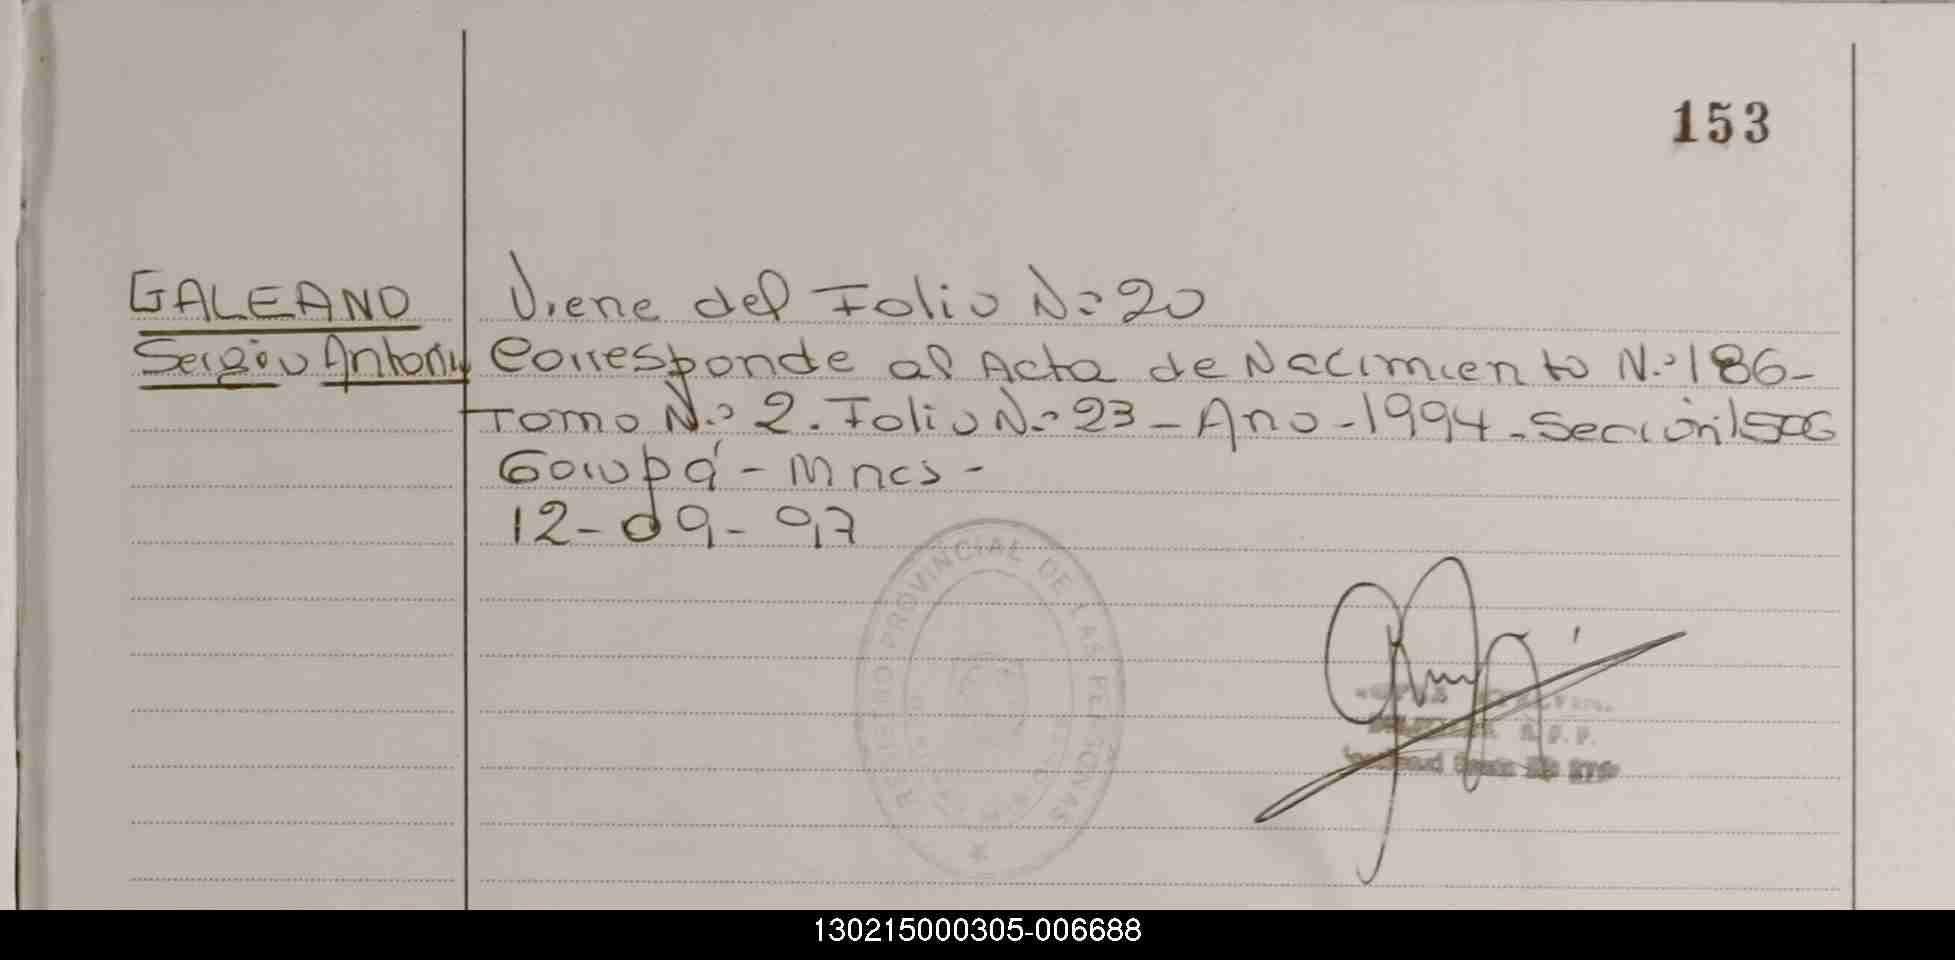 153
GALEANO
Sergio Antony
Viene del Folio N:20
Corresponde al Acta de Nacimiento N.:186-
Tomo N.: 2. Folio N.: 23 - Ano - 1994 - Sección 1506
Garupá - Mnes -
12-09-97
REGISTRO PROVINCIAL DE LAS PERSONAS
130215000305-006688